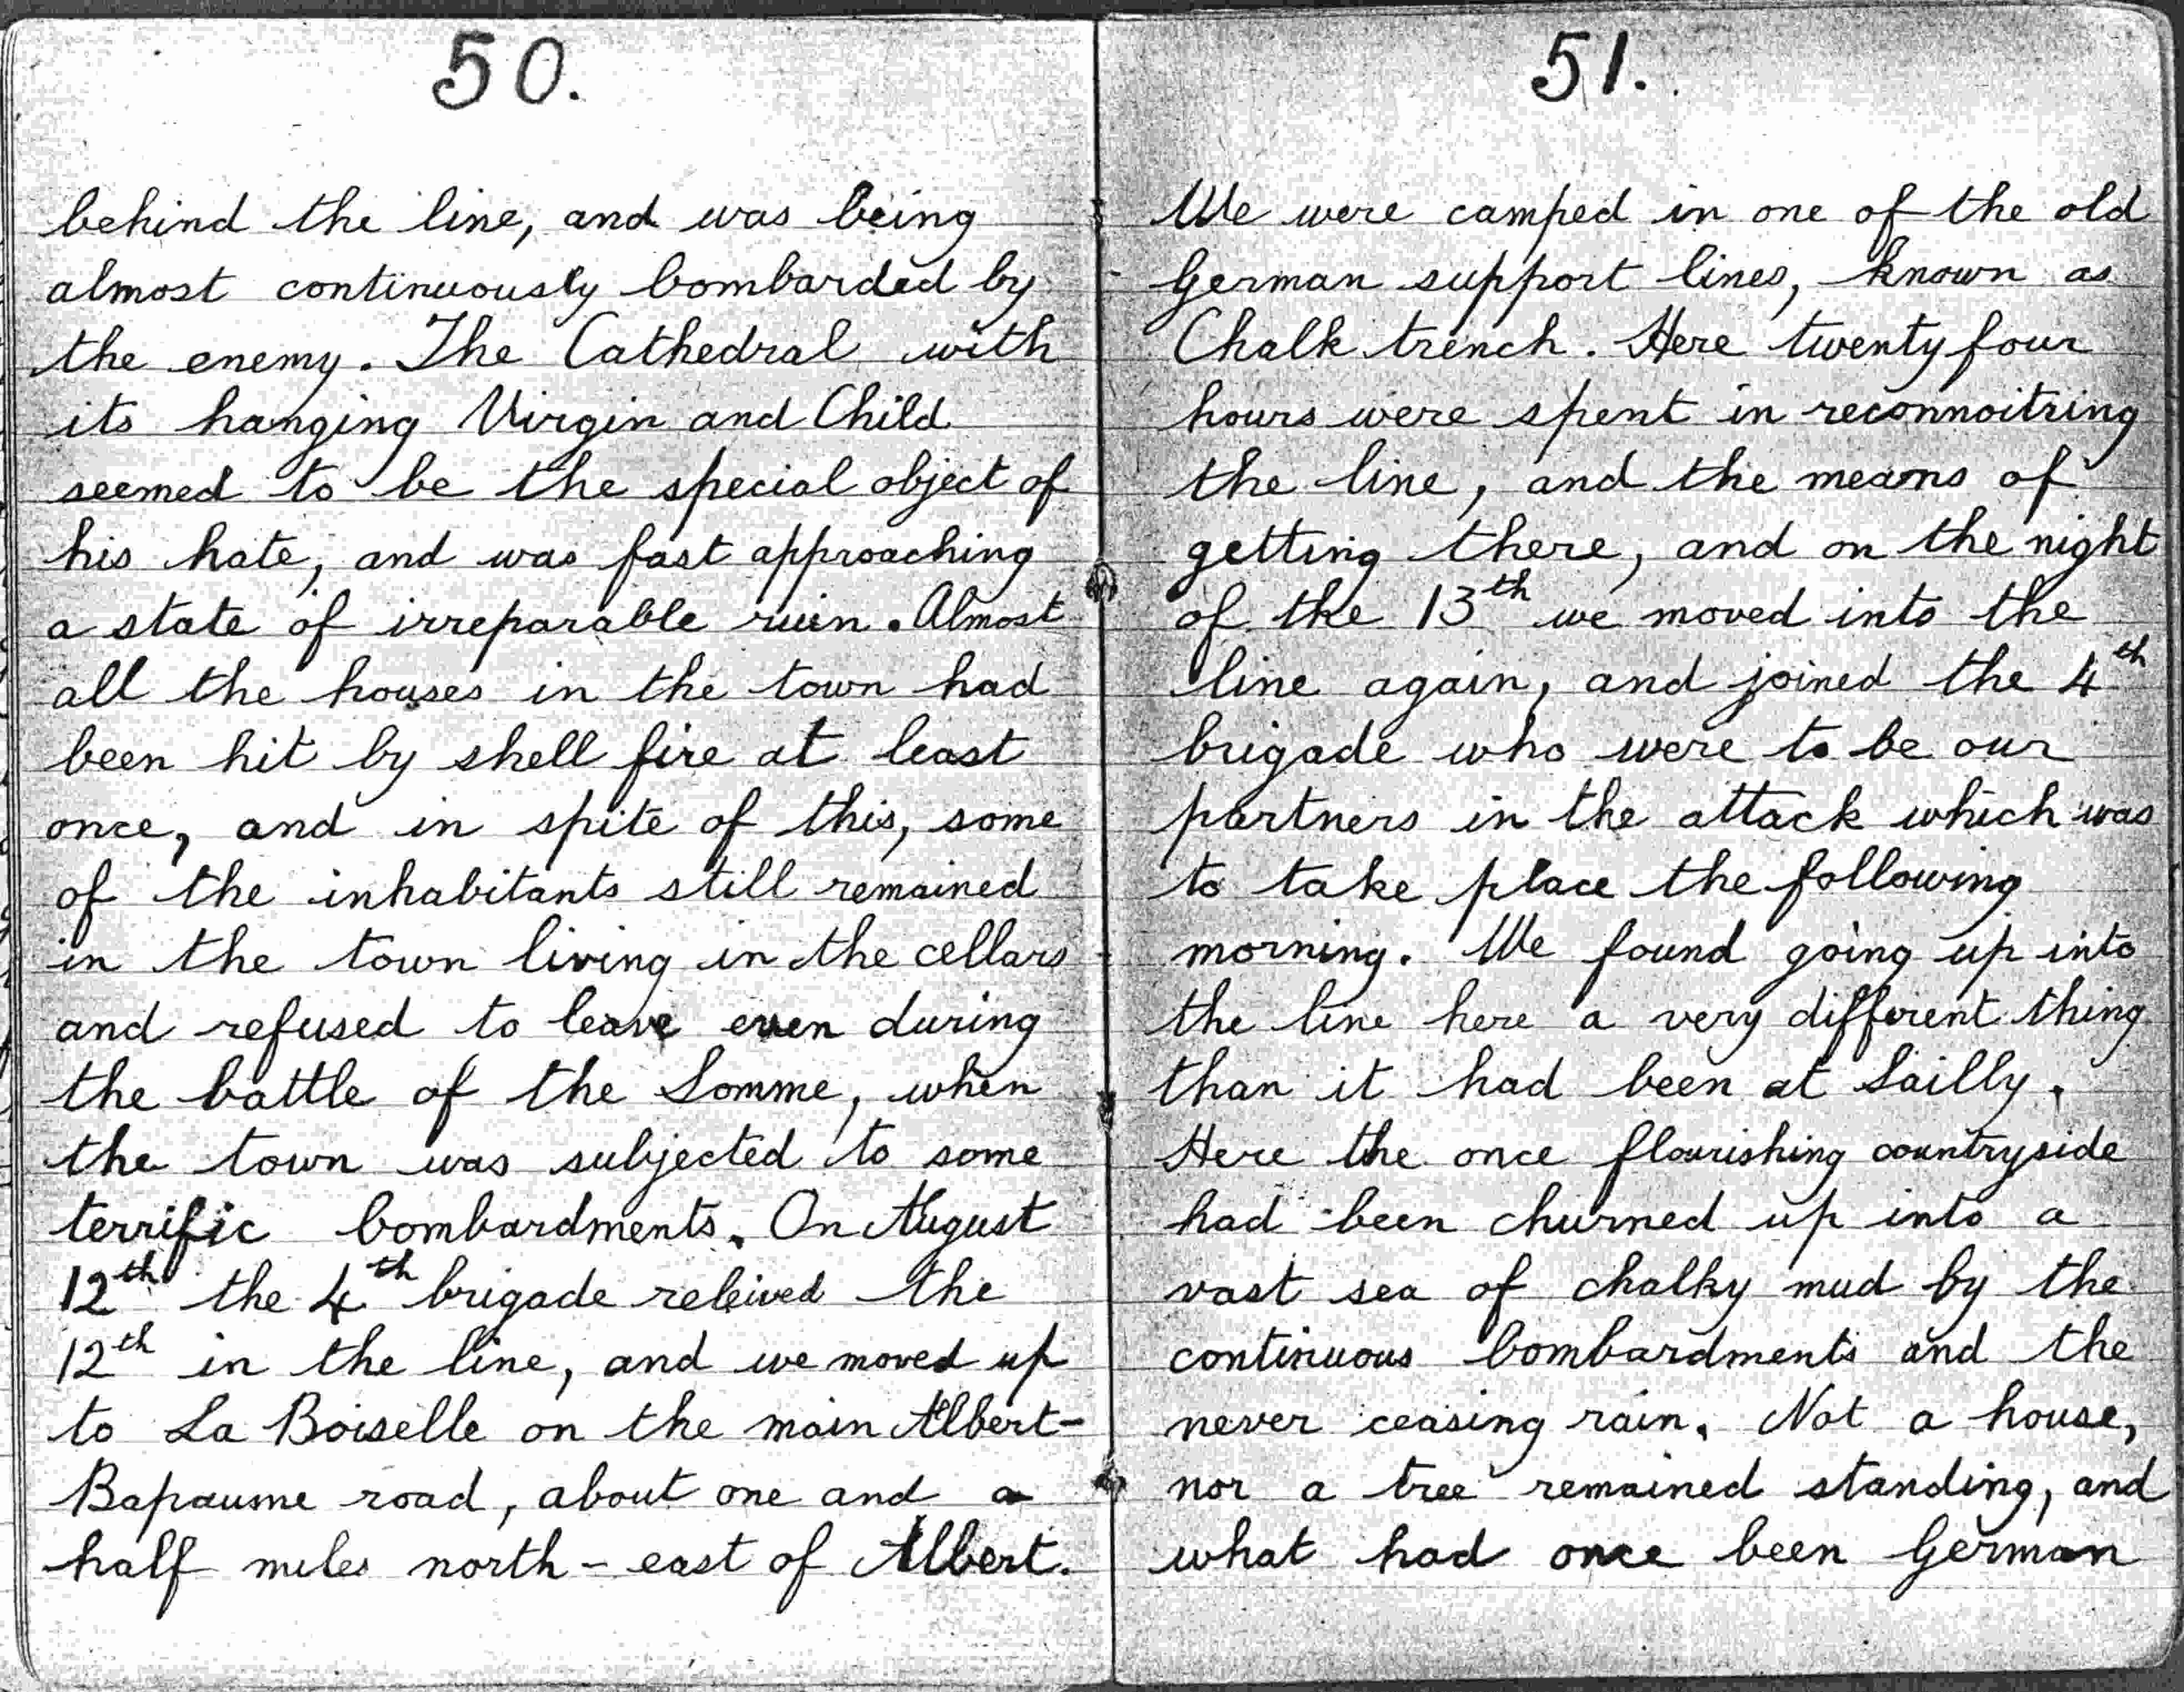 50.
behind the line, and was being
almost continuously bombarded by
the enemy. The Cathedral with
its hanging Virgin and Child
seemed to be the special object of
his hate, and was fast approaching
a state of irreparable ruin. Almost
all the houses in the town had
been hit by shell fire at least
once, and in spite of this, some
of the inhabitants still remained
in the town living in the cellars
and refused to leave even during
the battle of the Somme, when
the town was subjected to some
terrific bombardments. On August
12th the 4th brigade releived the
12th in the line, and we moved up
to La Boiselle on the main Albert-
Bapaume road, about one and a
half miles north-east of Albert.
51.
We were camped in one of the old
German support lines, known as
Chalk trench. Here twenty four
hours were spent in reconnoitring
the line, and the means of
getting there, and on the night
of the 13th we moved into the
line again, and joined the 4th
brigade who were to be our
partners in the attack which was
to take place the following
morning. We found going up into
the line here a very different thing
than it had been at Sailly.
Here the once flourishing countryside
had been churned up into a
vast sea of chalky mud by the
continuous bombardments and the
never ceasing rain. Not a house,
nor a tree remained standing, and
what had once been German